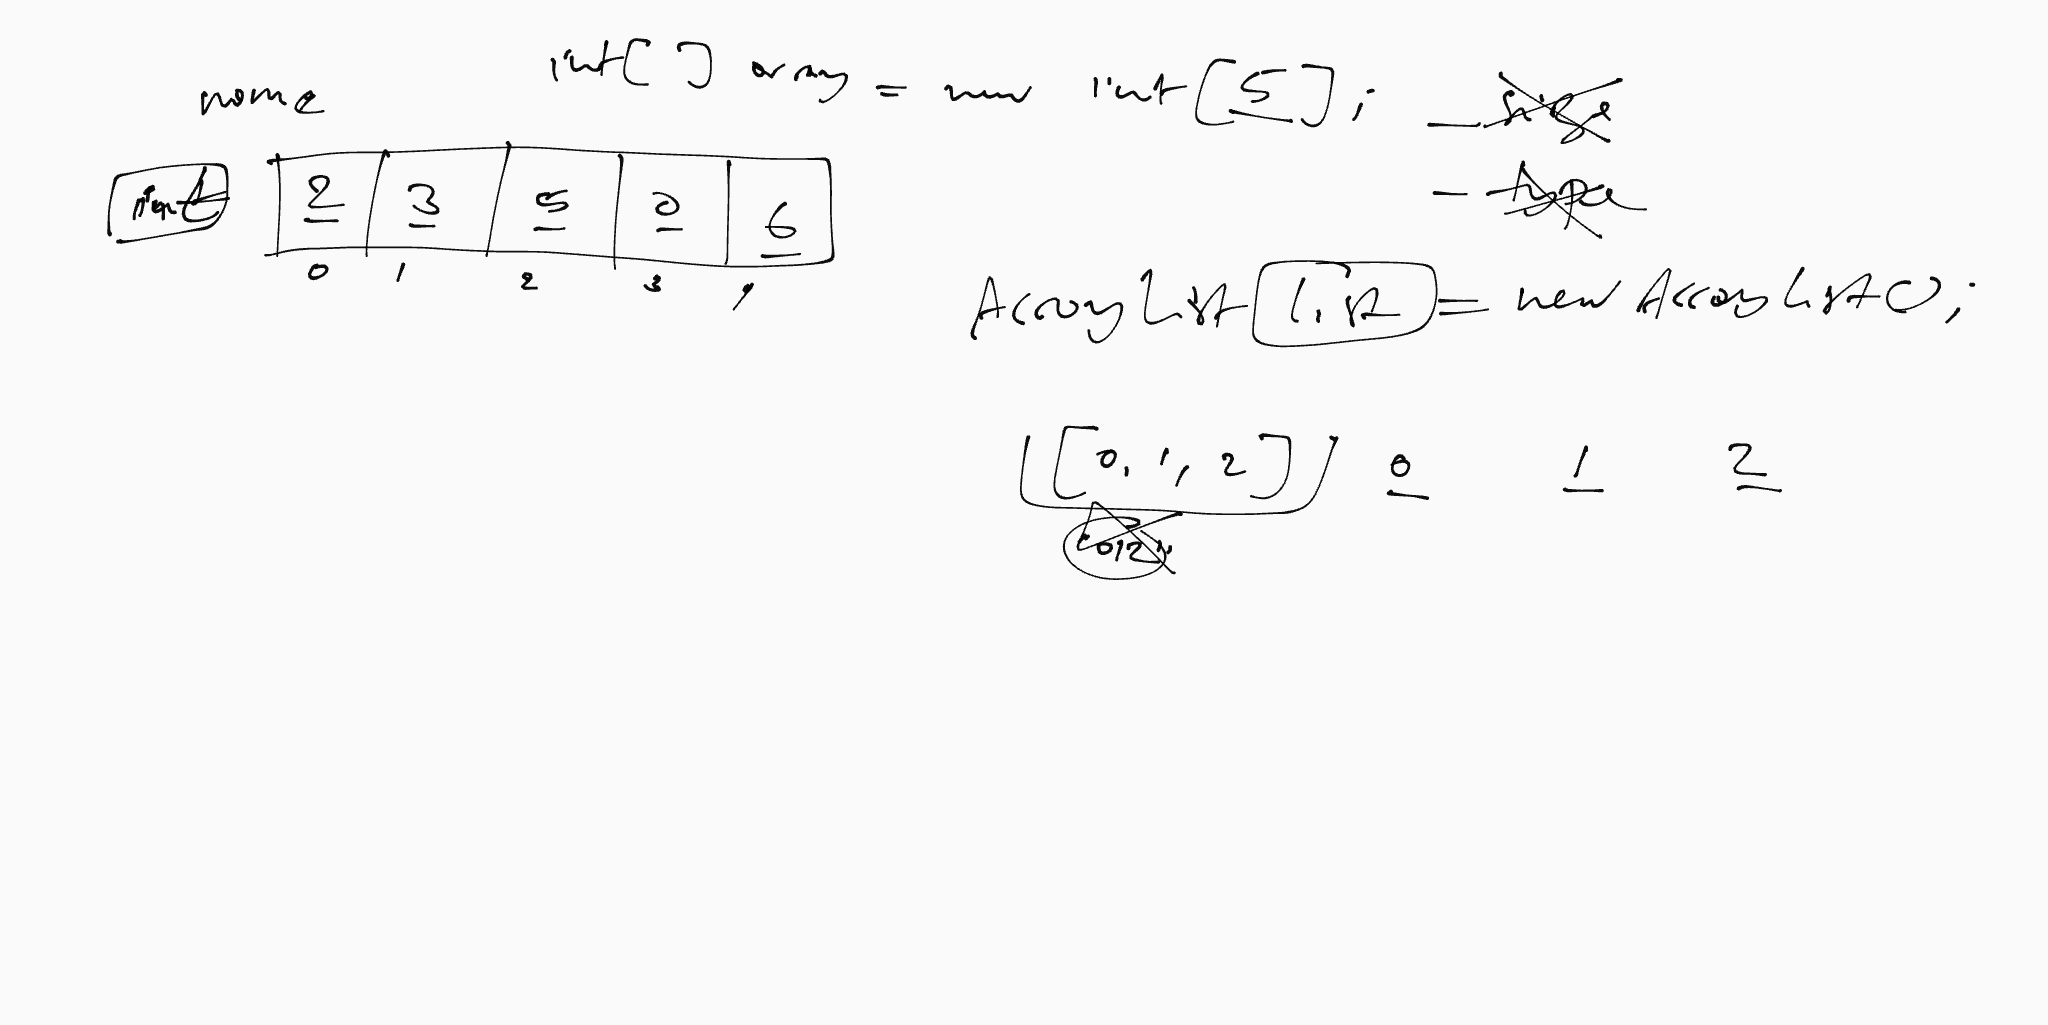 int[] array = new int[5];
name
- size
- type
int 2 3 5 0 6
0 1 2 3 4
ArrayList list = new ArrayList();
[0, 1, 2] 0 1 2
"012"